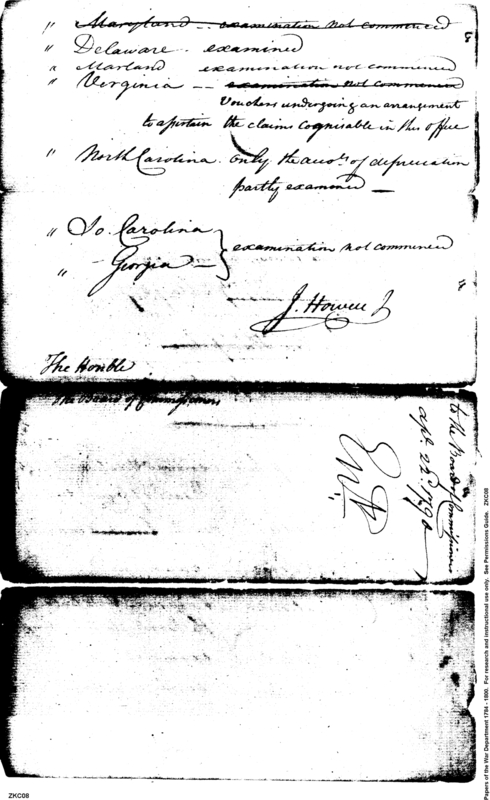 " ~~Maryland - - examination not commenced~~
" Delaware - examined
" Marland examination not commenced
" Virginia - - ~~examination not commenced~~
Vouchers undergoing an arrangement
to assertain the claims cognisable in this office
" North Carolina. only the accots. of depreciation
partly examined —
" So. Carolina
" Georgia — } examination not commenced
J. Howell J
The Honble
The Board of Commissioners
to the Board of Commissioners
apl. 22d. 1790
Papers of the War Department 1784 - 1800. For research and instructional use only. See Permissions Guide. ZKC08
ZKC08